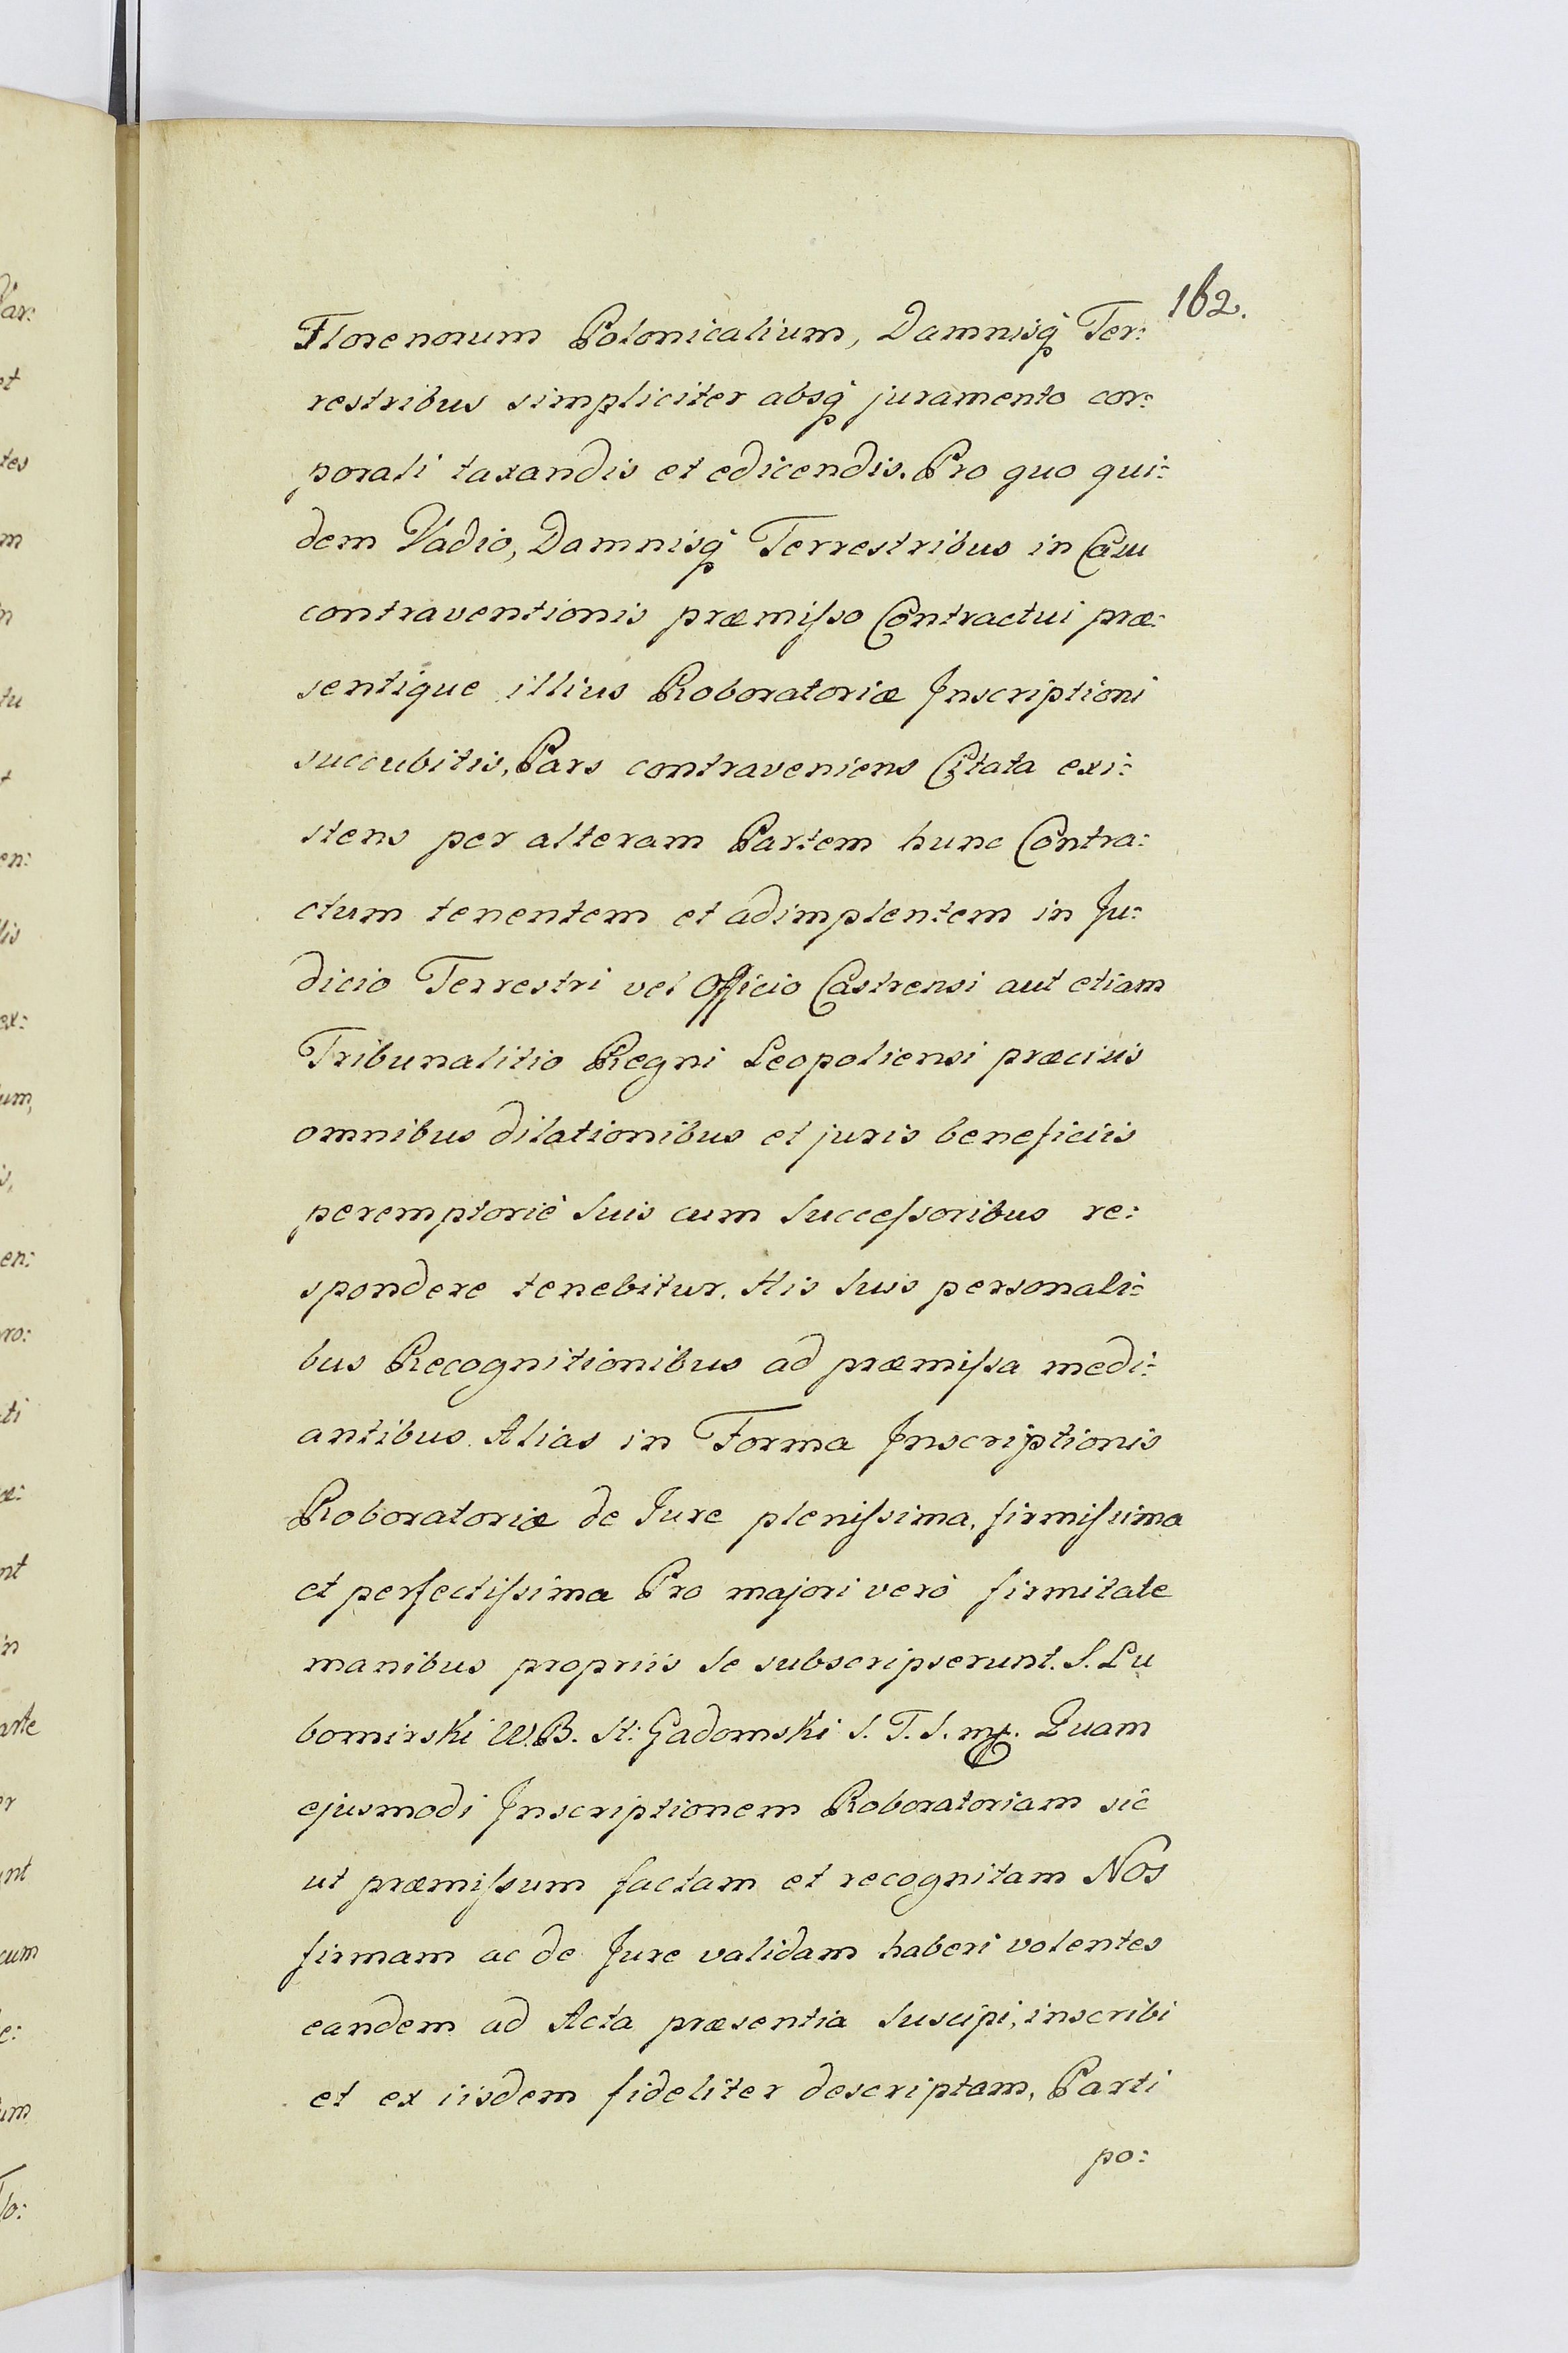 162.
Florenorum Polonicalium, Damnisq́ Ter:
restribus simpliciter absq́ juramento cor:
porali taxandis et edicendis. Pro quo qui:
dem Vadio, Damnisq́ Terrestribus in Casu
contraventionis præmiſso Contractui præ:
sentique illius Roboratoriæ Inscriptioni
succubitis, Pars contraveniens Citata exi:
stens per alteram Partem hunc Contra:
ctum tenentem et adimplentem in Ju:
dicio Terrestri vel Officio Castrensi aut etiam
Tribunalitio Regni Leopoliensi præcisis
omnibus dilationibus et juris beneficiis
peremptoriè Suis cum Succeſsoribus re:
spondere tenebitur. His Suis personali:
bus Recognitionibus ad præmiſsa medi:
antibus. Alias in Forma Inscriptionis
Roboratoriæ de Jure pleniſsima, firmiſsima
et perfectiſsima Pro majori verò firmitate
manibus propriis Se subscripserunt. S. Lu
bomirski W.B. St: Gadomski S. T. S. mp. Quam
ejusmodi Inscriptionem Roboratoriam sic
ut præmiſsum factam et recognitam Nos
firmam ac de Jure validam haberi volentes
eandem ad Acta præsentia Suscipi, inscribi
et ex iisdem fideliter descriptam, Parti
po:
Var:
et
tes
m
n
tu
t
en:
lis
ex:
um,
is,
en:
pro:
ti
æ:
nt
in
arte
er
unt
cum
e:
um
To: